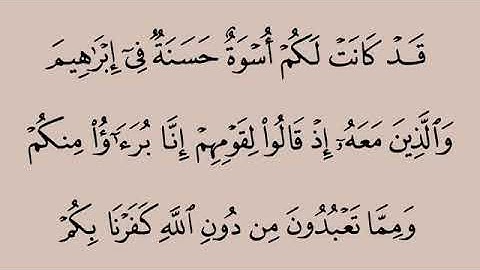 قَدۡ كَانَتۡ لَكُمۡ أُسۡوَةٌ حَسَنَةٌ فِيٓ إِبۡرَٰهِيمَ
وَٱلَّذِينَ مَعَهُۥٓ إِذۡ قَالُواْ لِقَوۡمِهِمۡ إِنَّا بُرَءَٰٓؤُاْ مِنكُمۡ
وَمِمَّا تَعۡبُدُونَ مِن دُونِ ٱللَّهِ كَفَرۡنَا بِكُمۡ